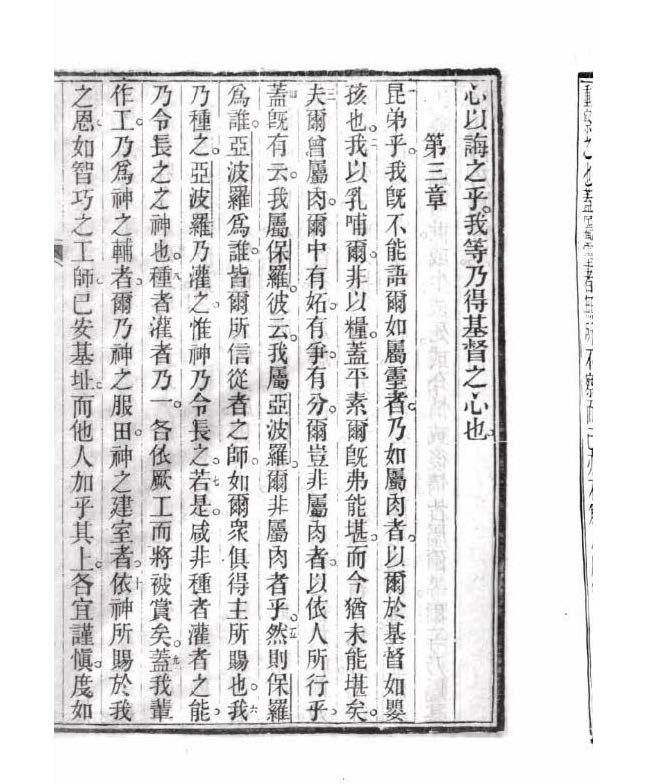 心以誨之乎。我等乃得基督之心也。
第三章
昆弟乎。我旣不能語爾如屬靈者。乃如屬肉者。以爾於基督如嬰
孩也。二我以乳哺爾。非以糧。蓋平素爾旣弗能堪。而今猶未能堪矣。
三夫爾曾屬肉。爾中有妬。有爭。有分。爾豈非屬肉者。以依人所行乎。
四蓋旣有云。我屬保羅。彼云。我屬亞波羅。爾非屬肉者乎。五然則保羅
爲誰。亞波羅爲誰。皆爾所信從者之師。如爾衆俱得主所賜也。六我
乃種之。亞波羅乃灌之。惟神乃令長之。七若是。咸非種者灌者之能。
乃令長之之神也。八種者灌者乃一。各依厥工而將被賞矣。九蓋我輩
作工。乃爲神之輔者。爾乃神之服田。神之建室者。十依神所賜於我
之恩。如智巧之工師。已安基址。而他人加乎其上。各宜謹愼。度如